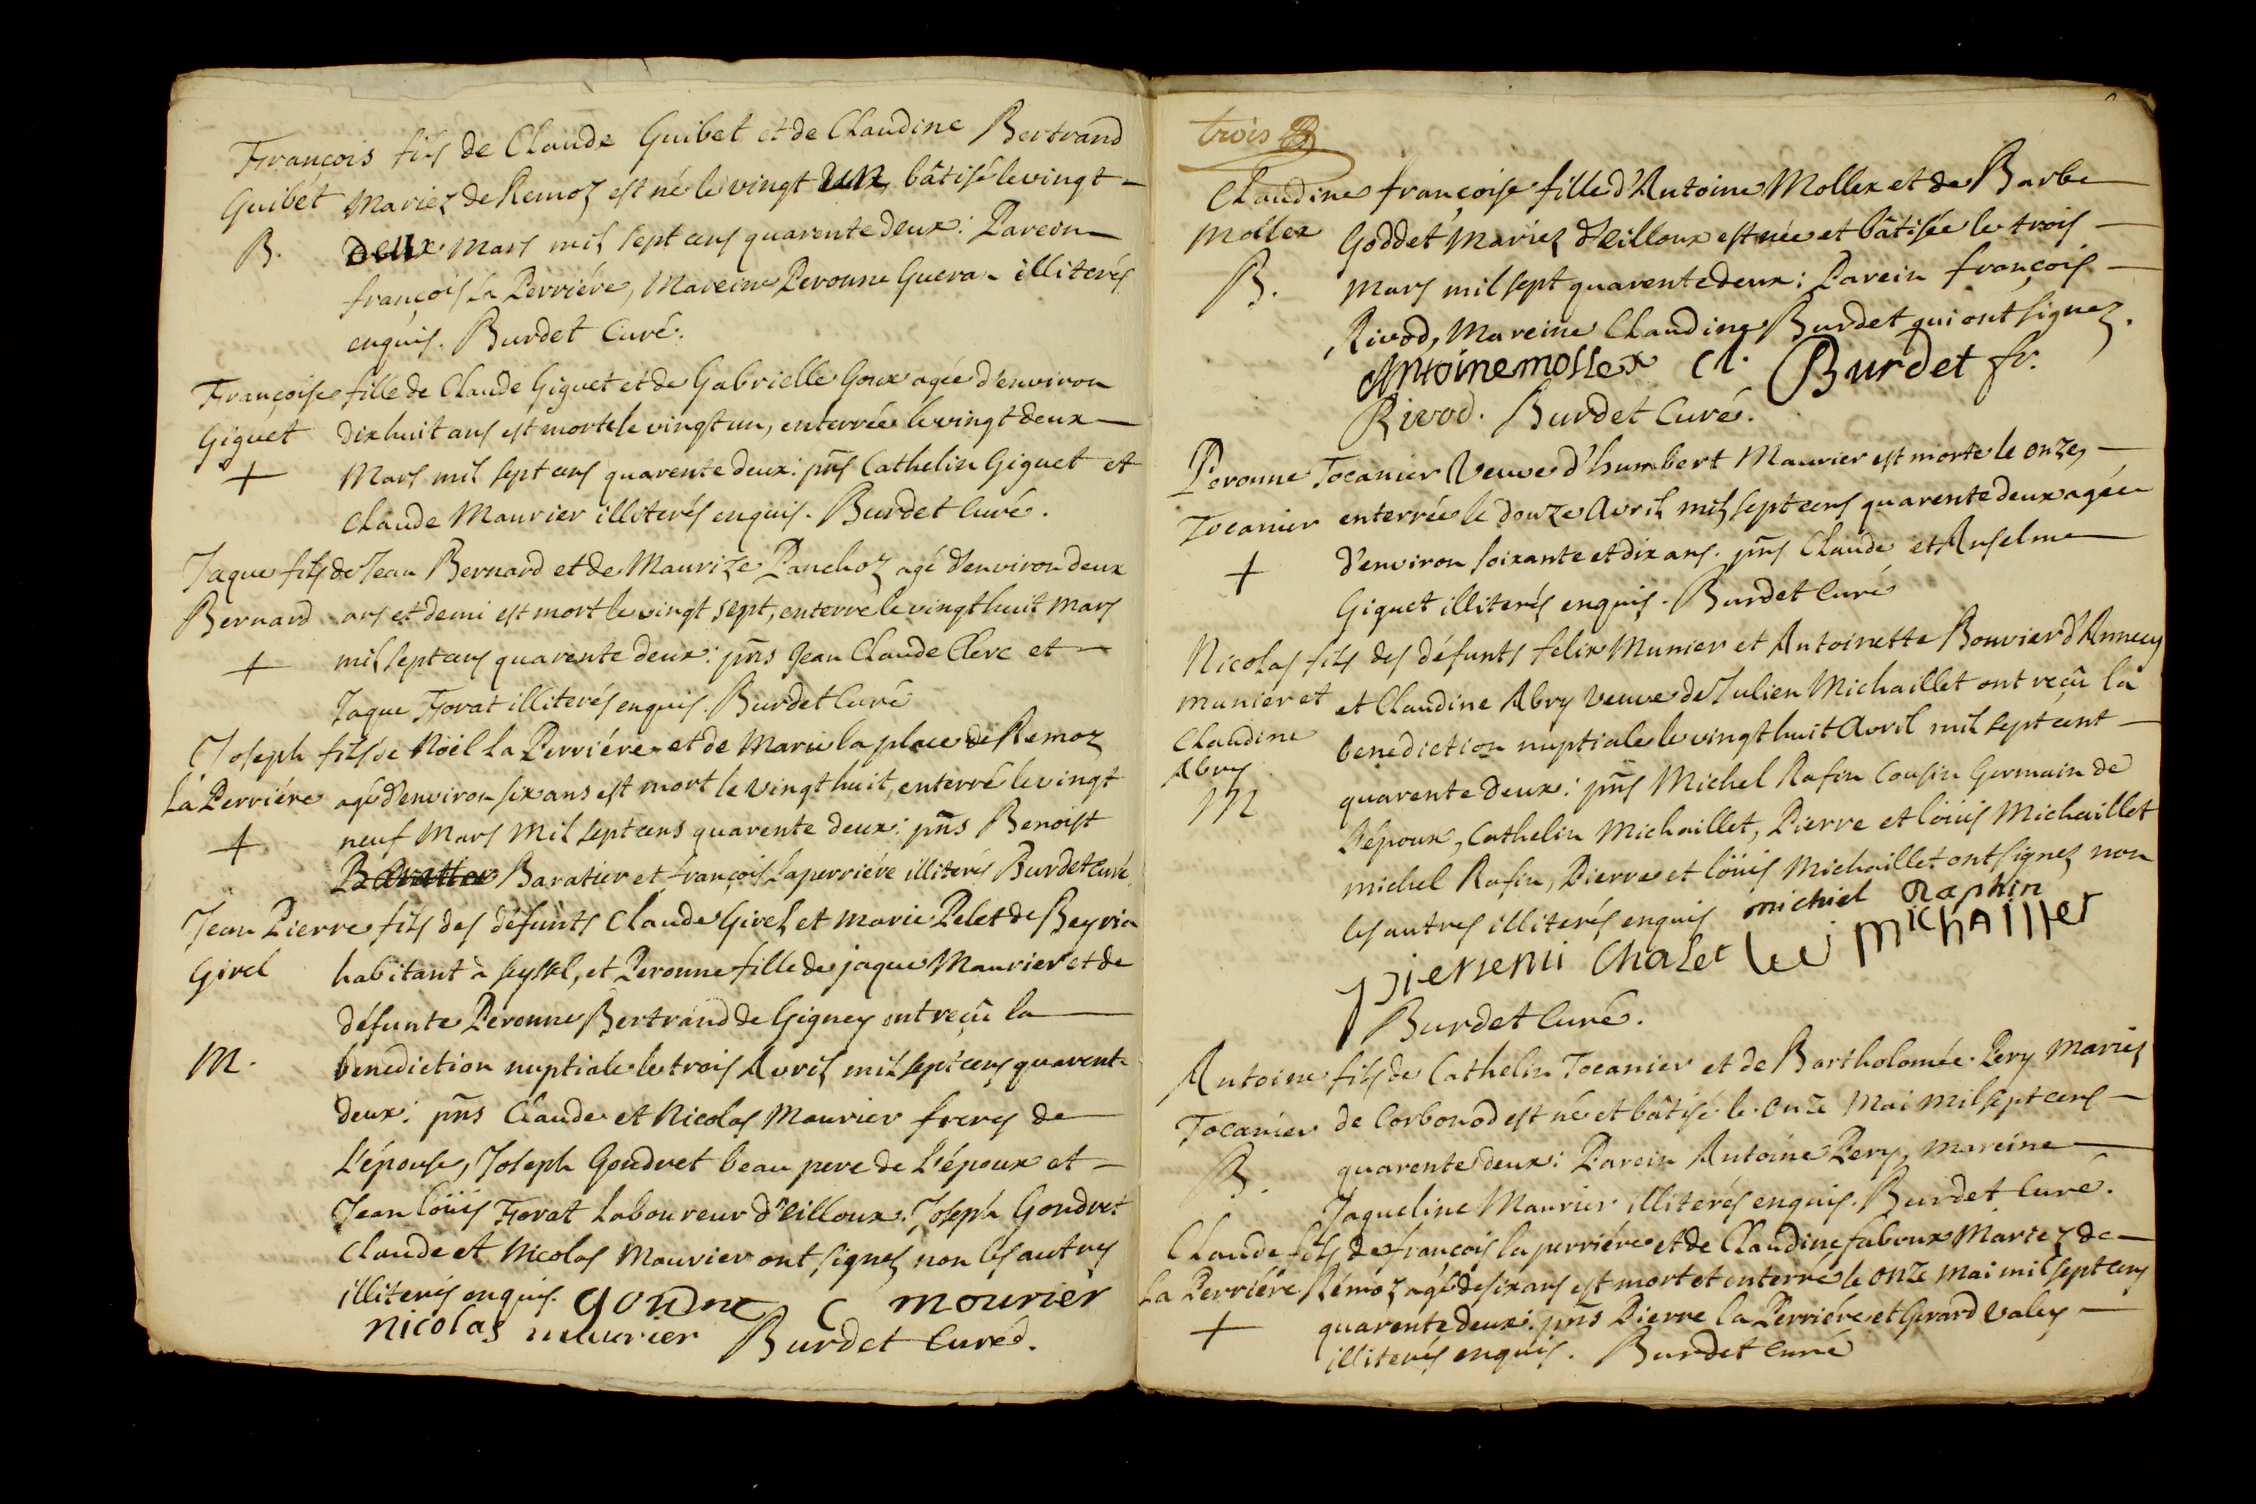 François fils de Claude Guibet et de Claudine Bertrand
Guibet Mariez de Remoz est né le vingt un, bâtisé le vingt
B. Deux Mars mil sept cens quarente deux: Parein
françois la Perriére, Mareine Peronne Guera illiterés
enquis. Burdet Curé.
Françoise fille de Claude Giguet et de Gabrielle Goux agée d'environ
Giguet dix huit ans est morte le vingt un, enterrée le vingt deux
+ Mars mil sept cens quarente deux: pns Cathelin Giguet et
Claude Maurier illiterés enquis. Burdet Curé.
Jaque fils de Jean Bernard et de Maurize Panchoz agé d'environ deux
Bernard ans et demi est mort le vingt sept, enterré le vingt huit Mars
+ mil sept cens quarente deux: pns Jean Claude Clerc et
Jaque Forat illiterés enquis. Burdet Curé
Joseph fils de Nöel La Perriére et de Marie la place de Remoz
La Perriére agé d'environ six ans est mort le vingt huit, enterré le vingt
+ neuf Mars Mil sept cens quarente deux: pns Benoist
Baratier et françois Laperriére illiterés Burdet Curé
Jean Pierre fils des défunts Claude Girel et Marie Pelet de Beyria
Girel habitant à Seyssel, et Peronne fille de jaque Maurier et de
défunte Peronne Bertrand de Gigney ont reçû la
M. benediction nuptiale le trois Avril mil sept cens quarente
deux: pns Claude et Nicolas Maurier freres de
L'épouse, Joseph Goudret beau pere de L'époux et
Jean Loüis Forat Laboureur d'Eilloux. Joseph Goudret
Claude et Nicolas Maurier ont signez non les autres
illiterés enquis. goudre C mourier
nicolas maurier Burdet Curé.
trois
Claudine françoise fille d'Antoine Mollex et de Barbe
Mollex Goddet Mariez d'Eilloux est née et bâtisée le trois
B. Mars mil sept quarente deux: Parein françois
Rivod, Mareine Claudine Burdet qui ont signez.
Antoine mollex Cl. Burdet fr.
Rivod. Burdet Curé.
Peronne Tocanier Veuve d'humbert Maurier est morte le onze,
Tocanier enterrée le douze Avril mil sept cens quarente deux agée
+ d'environ soixante et dix ans. pns Claude et Anselme
Giguet illiterés enquis. Burdet Curé
Nicolas fils des défunts felix Munier et Antoinette Bouvier d'Annecy
munier et et Claudine Abry veuve de Julien Michaillet ont reçû la
Claudine benediction nuptiale le vingt huit Avril mil sept cent
Abry
M quarente deux: pns Michel Rafin Cousin Germain de
L'époux, Cathelin Michaillet, Pierre et loüis Michaillet
michel Rafin, Pierre et loüis Michaillet ont signez non
les autres illiterés enquis michiel Raphin
Burdet Curé.
Antoine fils de Cathelin Tocanier et de Bartholomée Pery Mariez
Tocanier de Corbonod est né et bâtisé le onze Mai mil sept cens
B. quarente deux: Parein Antoine Pery, mareine
Jaqueline Maurier illiterés enquis. Burdet Curé.
Claude fils de françois la perriére et de Claudine faboux Mariez de
La Perriére Rémoz agé de six ans est mort et enterré le onze mai mil sept cens
+ quarente deux: pns Pierre la Perriére et Gerard Valey
illiterés enquis. Burdet Curé